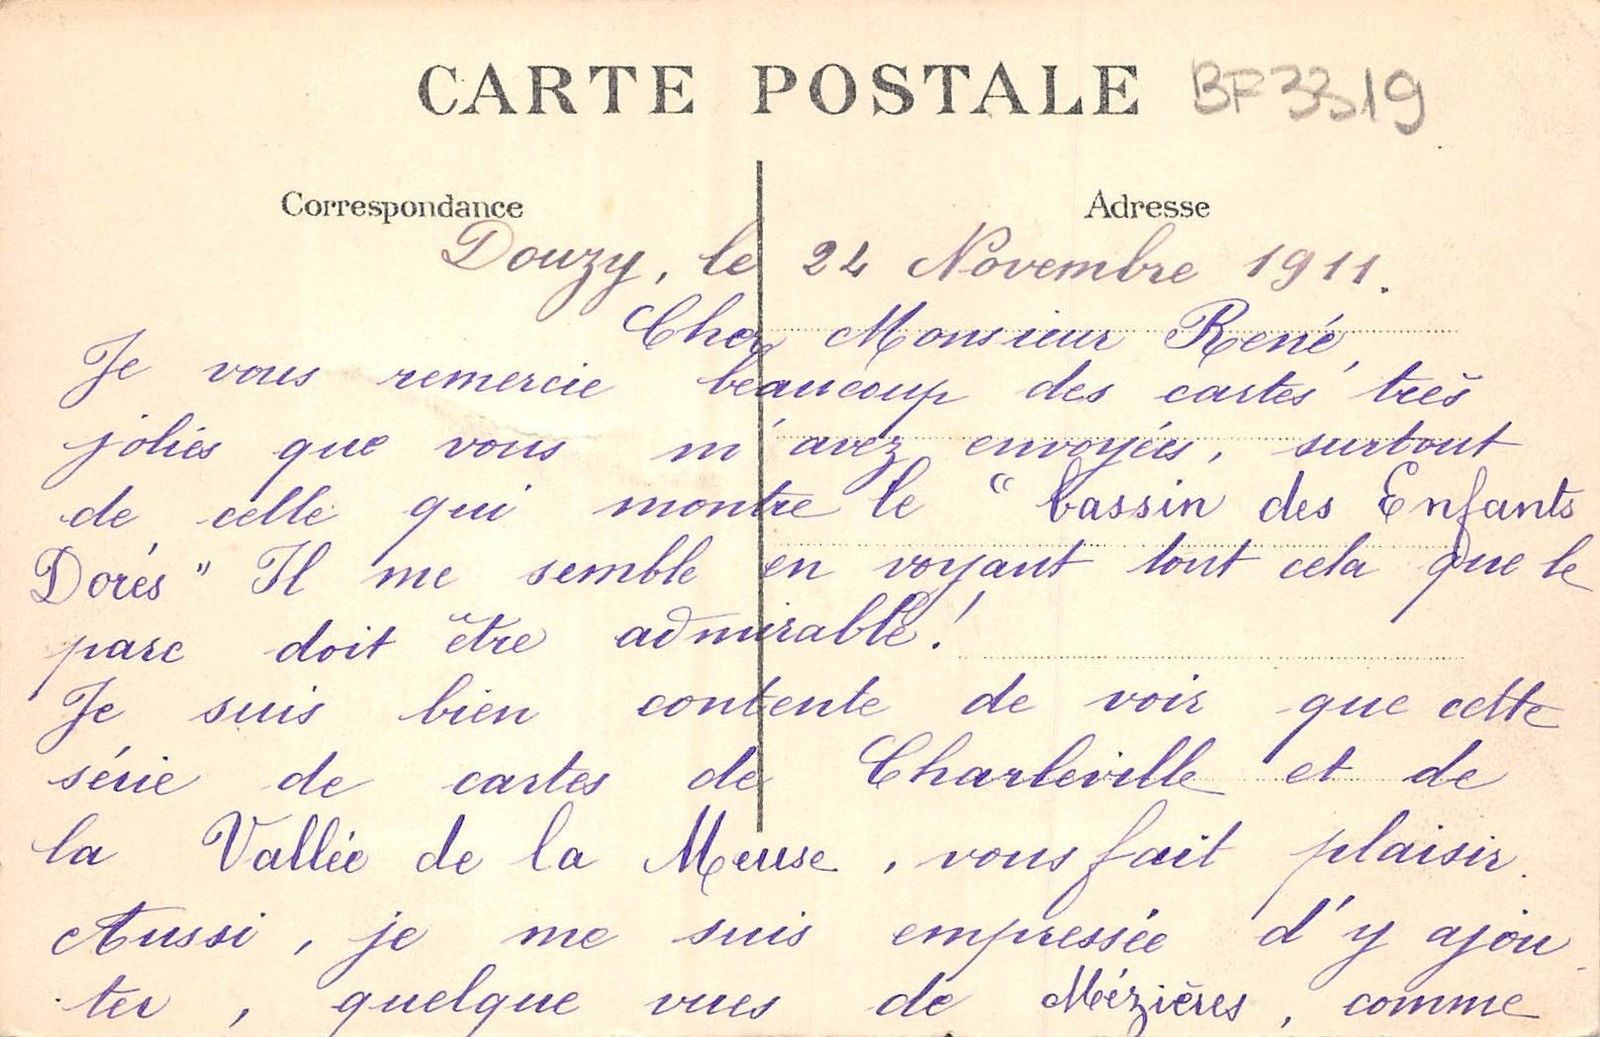 CARTE POSTALE BF3319
Correspondance
Adresse
Douzy, le 24 Novembre 1911.
Cher Monsieur René,
Je vous remercie beaucoup des cartes très
jolies que vous m'avez envoyées, surtout
de celle qui montre le "bassin des Enfants
Dorés" Il me semble en voyant tout cela que le
parc doit être admirable!
Je suis bien contente de voir que cette
série de cartes de Charleville et de
la Vallée de la Meuse, vous fait plaisir.
Aussi, je me suis empressée d'y ajou
ter, quelque vues de Mézières, comme